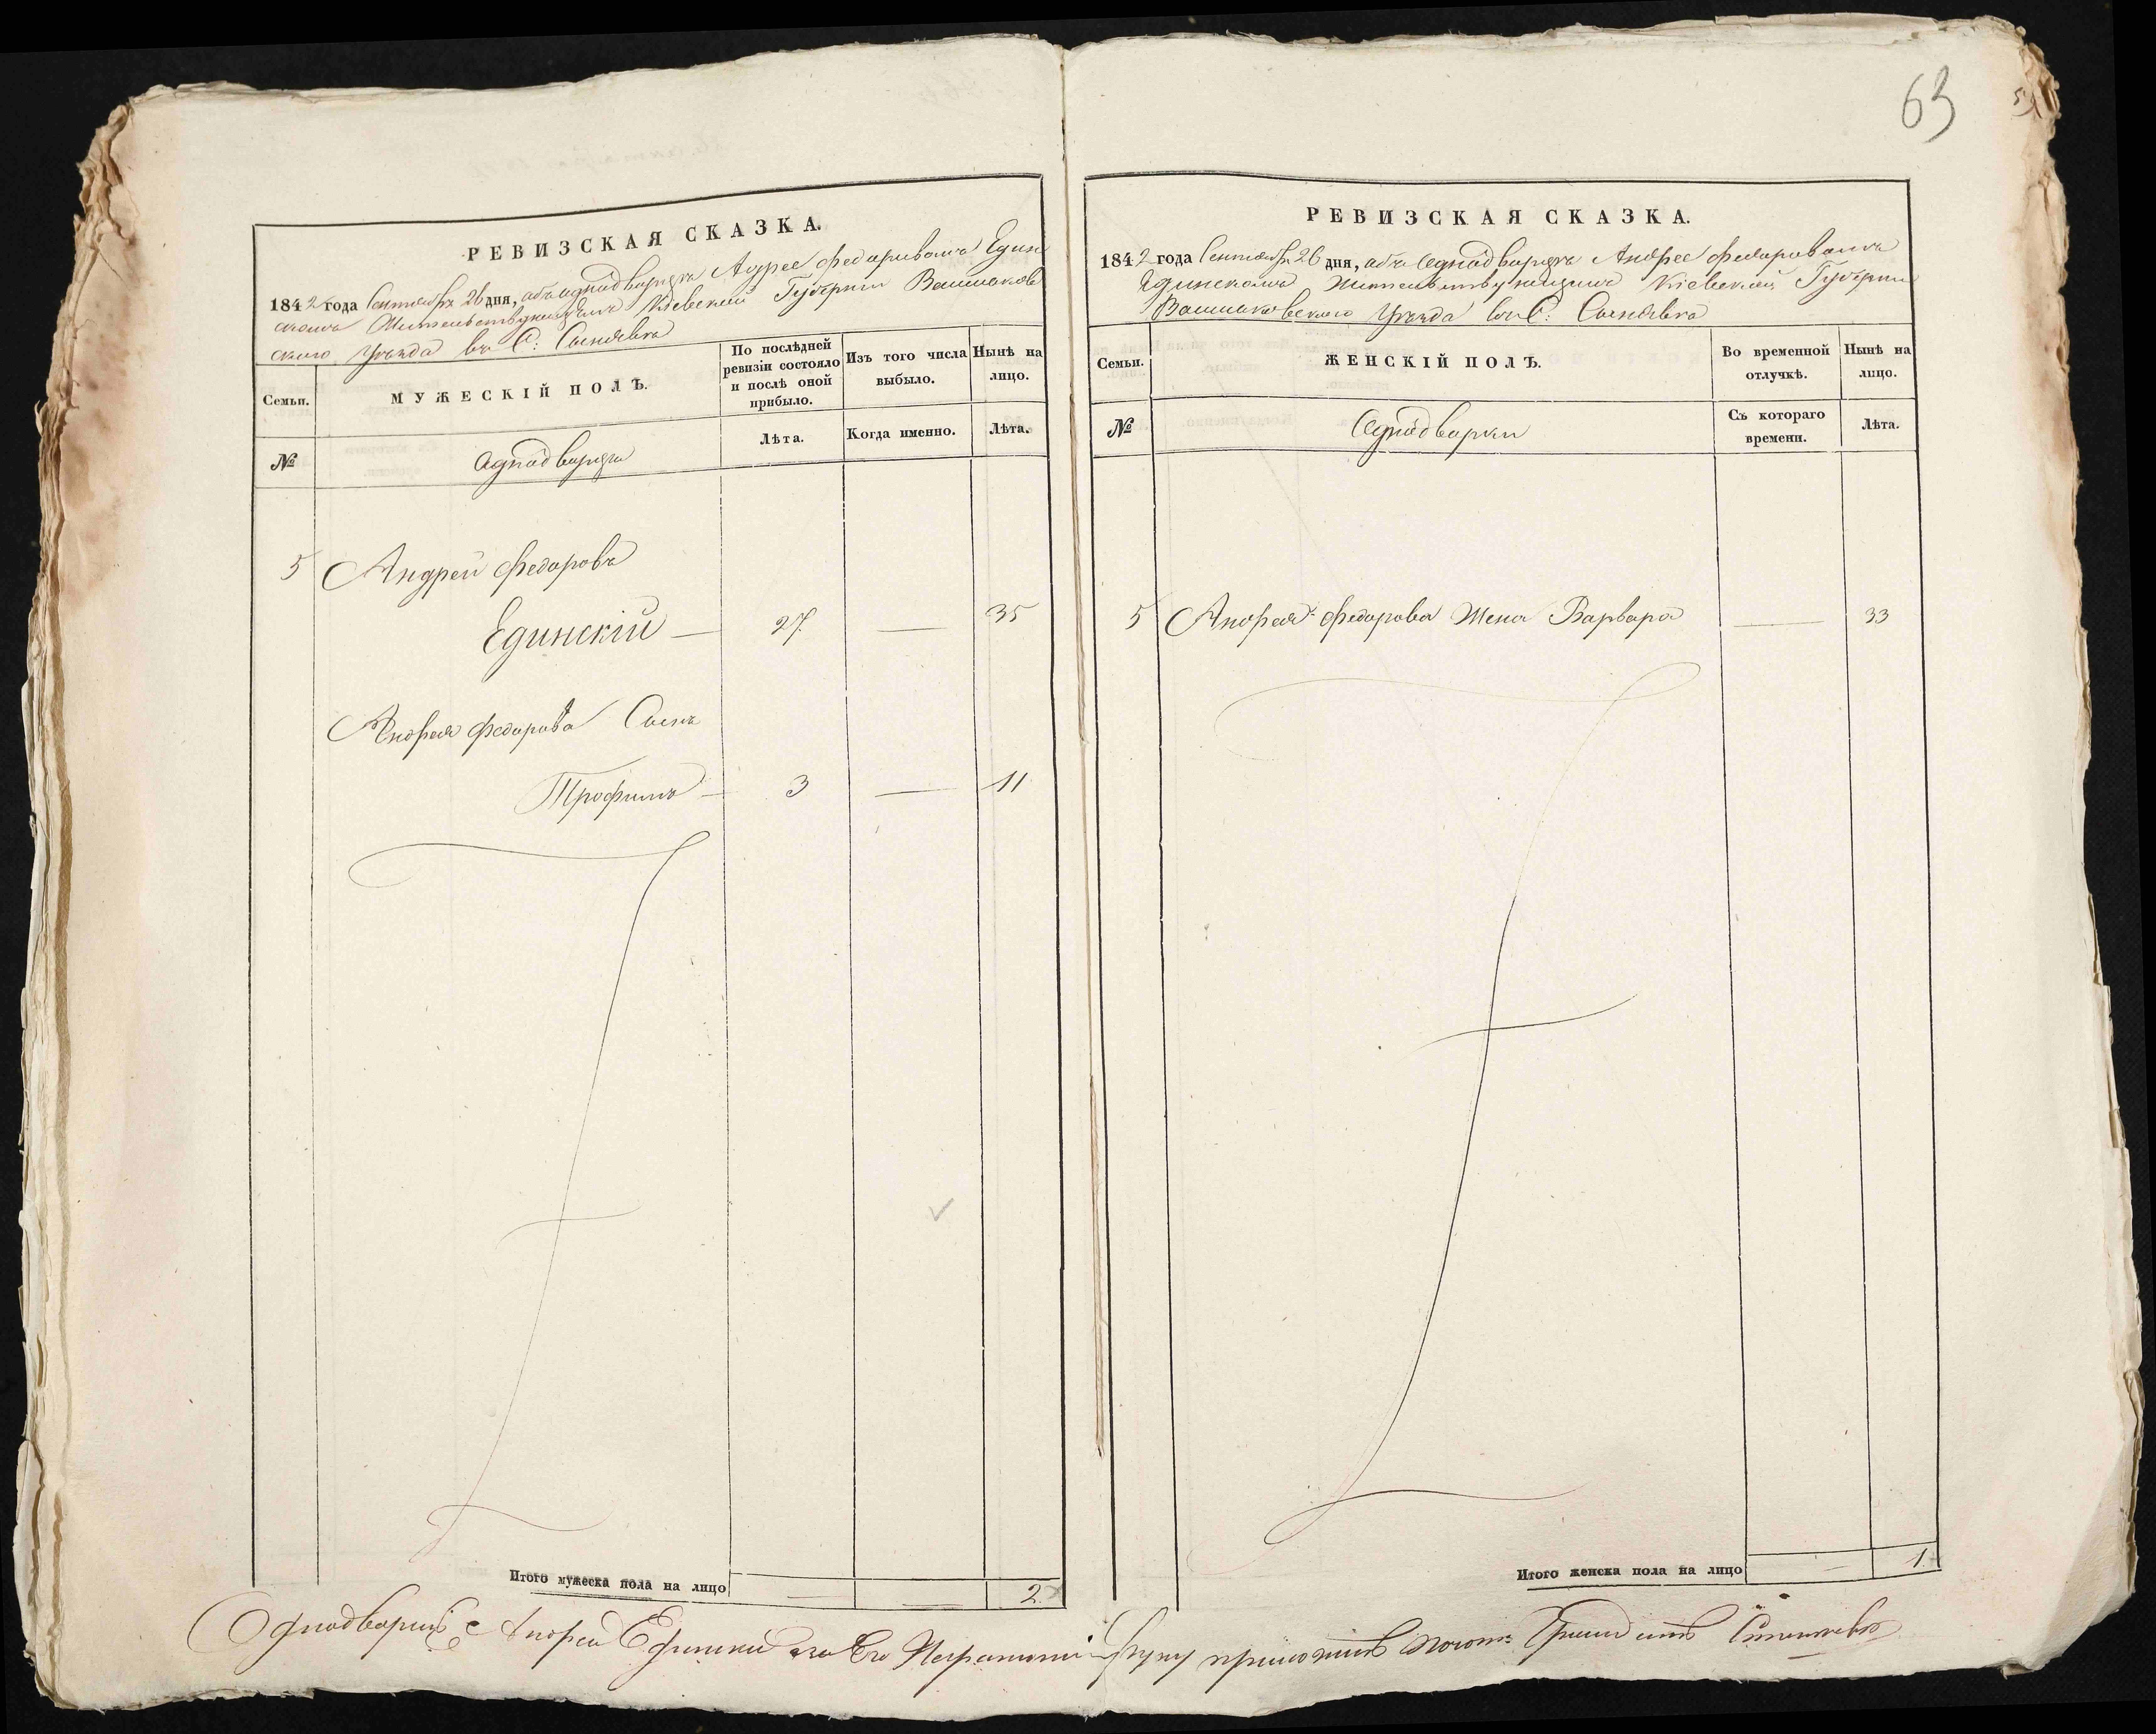 63
РЕВИЗСКАЯ СКАЗКА.
1842 года Сентября 26 дня, объ однодворцѣ Андрее Федоровомъ Един
скомъ Жительствующемъ Кіевской Губерніи Васильков
ского Уѣзда въ С:
Семьи.
МУЖЕСКІЙ ПОЛЪ.
По послѣдней ревизіи состояло и послѣ оной прибыло.
Изъ того числа выбыло.
Нынѣ на лицо.
№
Лѣта.
Когда именно.
Лѣта.
5 Андрей Федоровъ
Единскій — 27. — 35
Андрея Федорова Сынъ
Трофимъ — 3 — 11
Итого мужеска пола на лицо — — 2
РЕВИЗСКАЯ СКАЗКА.
1842 года Сентябр. 26 дня, объ однодворцѣ Андрее Федоровомъ
Единскомъ Жительствующемъ Кіевской Губерніи
Васильковского Уѣзда въ С:
Семьи.
ЖЕНСКІЙ ПОЛЪ.
Во временной отлучкѣ.
Нынѣ на лицо.
№
Однодворки
Съ котораго времени.
Лѣта.
5 Андрея Федорова Жена Варвара — 33
Итого женска пола на лицо — 1
Однодворец Андрей Единский а за Его руку приложилъ